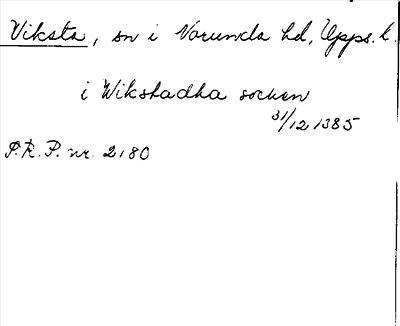 Viksta, sn i Norunda hd, Upps. l.
i Wikstadha socken
31/12 1385
P.R.P. nr. 2180